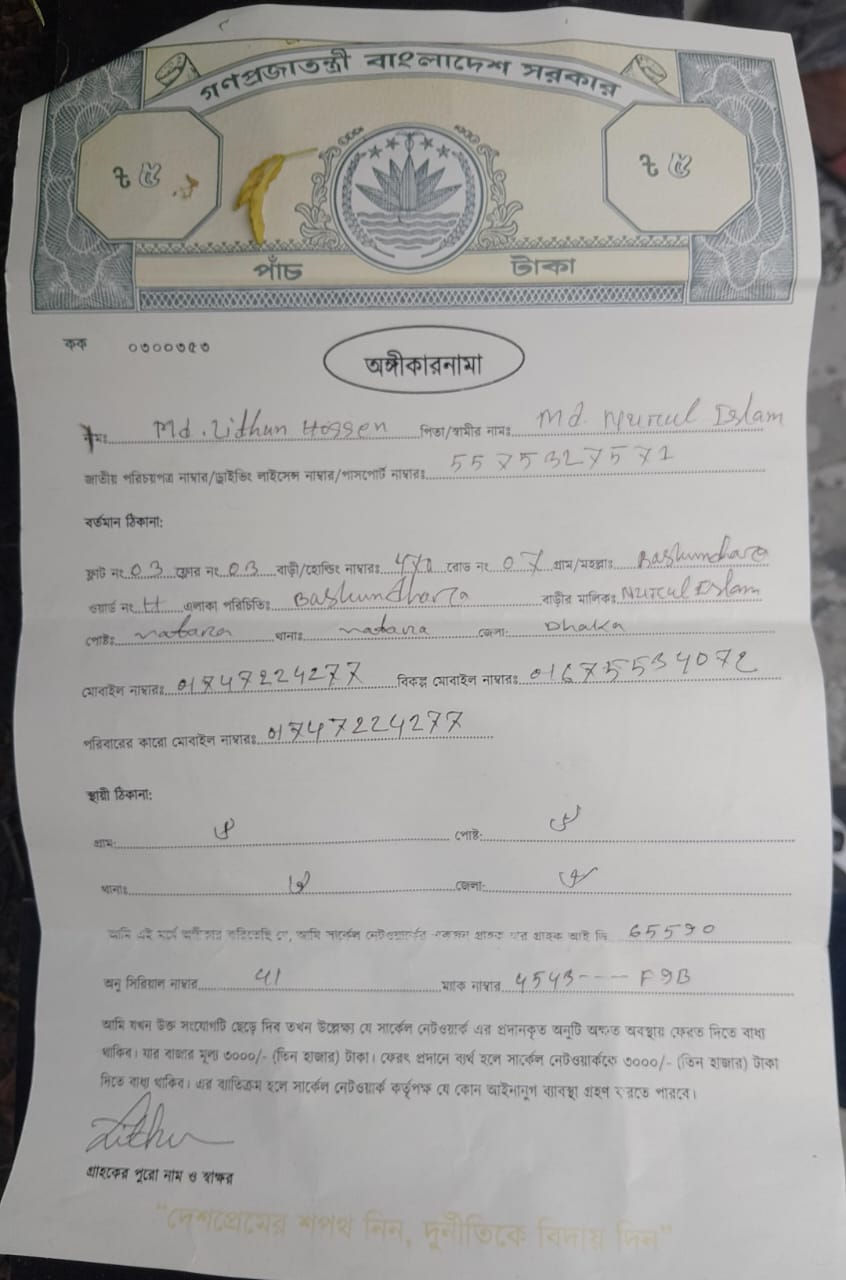 গণপ্রজাতন্ত্রী বাংলাদেশ সরকার
ট ৫ ট ৫
পাঁচ টাকা
কক ০৩০০৩৫৩
অঙ্গীকারনামা
নামঃ Md. Lidhun Hossen পিতা/স্বামীর নামঃ Md. Nurul Islam
জাতীয় পরিচয়পত্র নাম্বার/ড্রাইভিং লাইসেন্স নাম্বার/পাসপোর্ট নাম্বারঃ 5575327571
বর্তমান ঠিকানা:
ফ্লাট নং 03 ফ্লোর নং 03 বাড়ী/হোল্ডিং নাম্বারঃ রোড নং 07 গ্রাম/মহল্লাঃ Bashundhara
ওয়ার্ড নং H এলাকা পরিচিতিঃ Bashundhara বাড়ীর মালিকঃ Nurul Islam
পোষ্টঃ vatara থানাঃ vatara জেলা: Dhaka
মোবাইল নাম্বারঃ 01747224277 বিকল্প মোবাইল নাম্বারঃ 01675534072
পরিবারের কারো মোবাইল নাম্বারঃ 01747224277
স্থায়ী ঠিকানা:
গ্রাম: ঐ পোষ্ট: ঐ
থানাঃ ঐ জেলা: ঐ
আমি এই মর্মে অঙ্গীকার করিতেছি যে, আমি সার্কেল নেটওয়ার্কের একজন গ্রাহক যার গ্রাহক আই ডি 65590
অনু সিরিয়াল নাম্বার 41 ম্যাক নাম্বার 4543---- F9B
আমি যখন উক্ত সংযোগটি ছেড়ে দিব তখন উল্লেক্ষ্য যে সার্কেল নেটওয়ার্ক এর প্রদানকৃত অনুটি অক্ষত অবস্থায় ফেরত দিতে বাধ্য
থাকিব। যার বাজার মূল্য ৩০০০/- (তিন হাজার) টাকা। ফেরৎ প্রদানে ব্যর্থ হলে সার্কেল নেটওয়ার্ককে ৩০০০/- (তিন হাজার) টাকা
দিতে বাধ্য থাকিব। এর ব্যতিক্রম হলে সার্কেল নেটওয়ার্ক কর্তৃপক্ষ যে কোন আইনানুগ ব্যবস্থা গ্রহণ করতে পারবে।
গ্রাহকের পুরো নাম ও স্বাক্ষর
"দেশপ্রেমের শপথ নিন, দুর্নীতিকে বিদায় দিন"